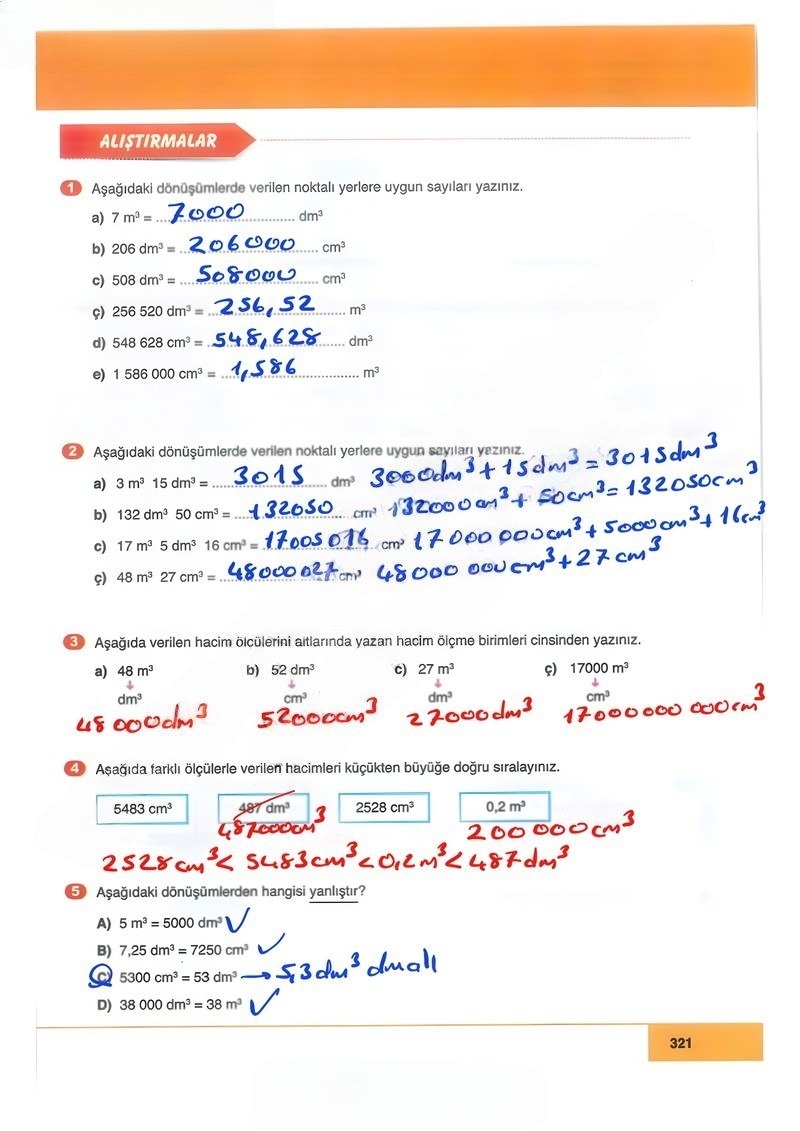 ALIŞTIRMALAR
1 Aşağıdaki dönüşümlerde verilen noktalı yerlere uygun sayıları yazınız.
a) 7 m³ = 7000 dm³
b) 206 dm³ = 206000 cm³
c) 508 dm³ = 508000 cm³
ç) 256 520 dm³ = 256,52 m³
d) 548 628 cm³ = 548,628 dm³
e) 1 586 000 cm³ = 1,586 m³
2 Aşağıdaki dönüşümlerde verilen noktalı yerlere uygun sayıları yazınız.
a) 3 m³ 15 dm³ = 3015 dm³ 3000dm³ + 15dm³ = 3015dm³
b) 132 dm³ 50 cm³ = 132050 cm³ 132000cm³ + 50cm³ = 132050cm³
c) 17 m³ 5 dm³ 16 cm³ = 17005016 cm³ 17000000cm³ + 5000cm³ + 16cm³
ç) 48 m³ 27 cm³ = 48000027 cm³ 48000000cm³ + 27cm³
3 Aşağıda verilen hacim ölçülerini altlarında yazan hacim ölçme birimleri cinsinden yazınız.
a) 48 m³ b) 52 dm³ c) 27 m³ ç) 17000 m³
dm³ cm³ dm³ cm³
48000dm³ 52000cm³ 27000dm³ 17000000000cm³
4 Aşağıda farklı ölçülerle verilen hacimleri küçükten büyüğe doğru sıralayınız.
5483 cm³ 487 dm³ 2528 cm³ 0,2 m³
487000cm³ 200000cm³
2528cm³ < 5483cm³ < 0,2m³ < 487dm³
5 Aşağıdaki dönüşümlerden hangisi yanlıştır?
A) 5 m³ = 5000 dm³ ✓
B) 7,25 dm³ = 7250 cm³ ✓
C) 5300 cm³ = 53 dm³ → 5,3 dm³ olmalı
D) 38 000 dm³ = 38 m³ ✓
321